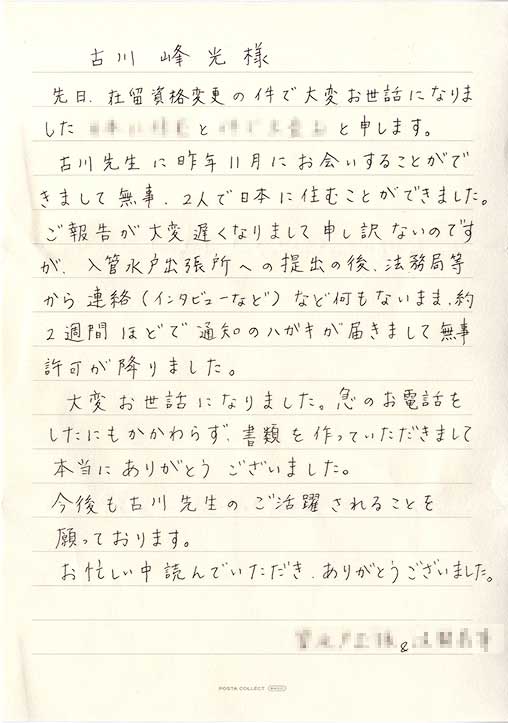 古川 峰光 様
先日、在留資格変更の件で大変お世話になりま
した と と申します。
古川先生に昨年11月にお会いすることがで
きまして無事、2人で日本に住むことができました。
ご報告が大変遅くなりまして申し訳ないのです
が、入管水戸出張所への提出の後、法務局等
から連絡(インタビューなど)など何もないまま、約
2週間ほどで通知のハガキが届きまして無事
許可が降りました。
大変お世話になりました。急のお電話を
したにもかかわらず、書類を作っていただきまして
本当にありがとうございました。
今後も古川先生のご活躍されることを
願っております。
お忙しい中読んでいただき、ありがとうございました。
&
POSTA COLLECT